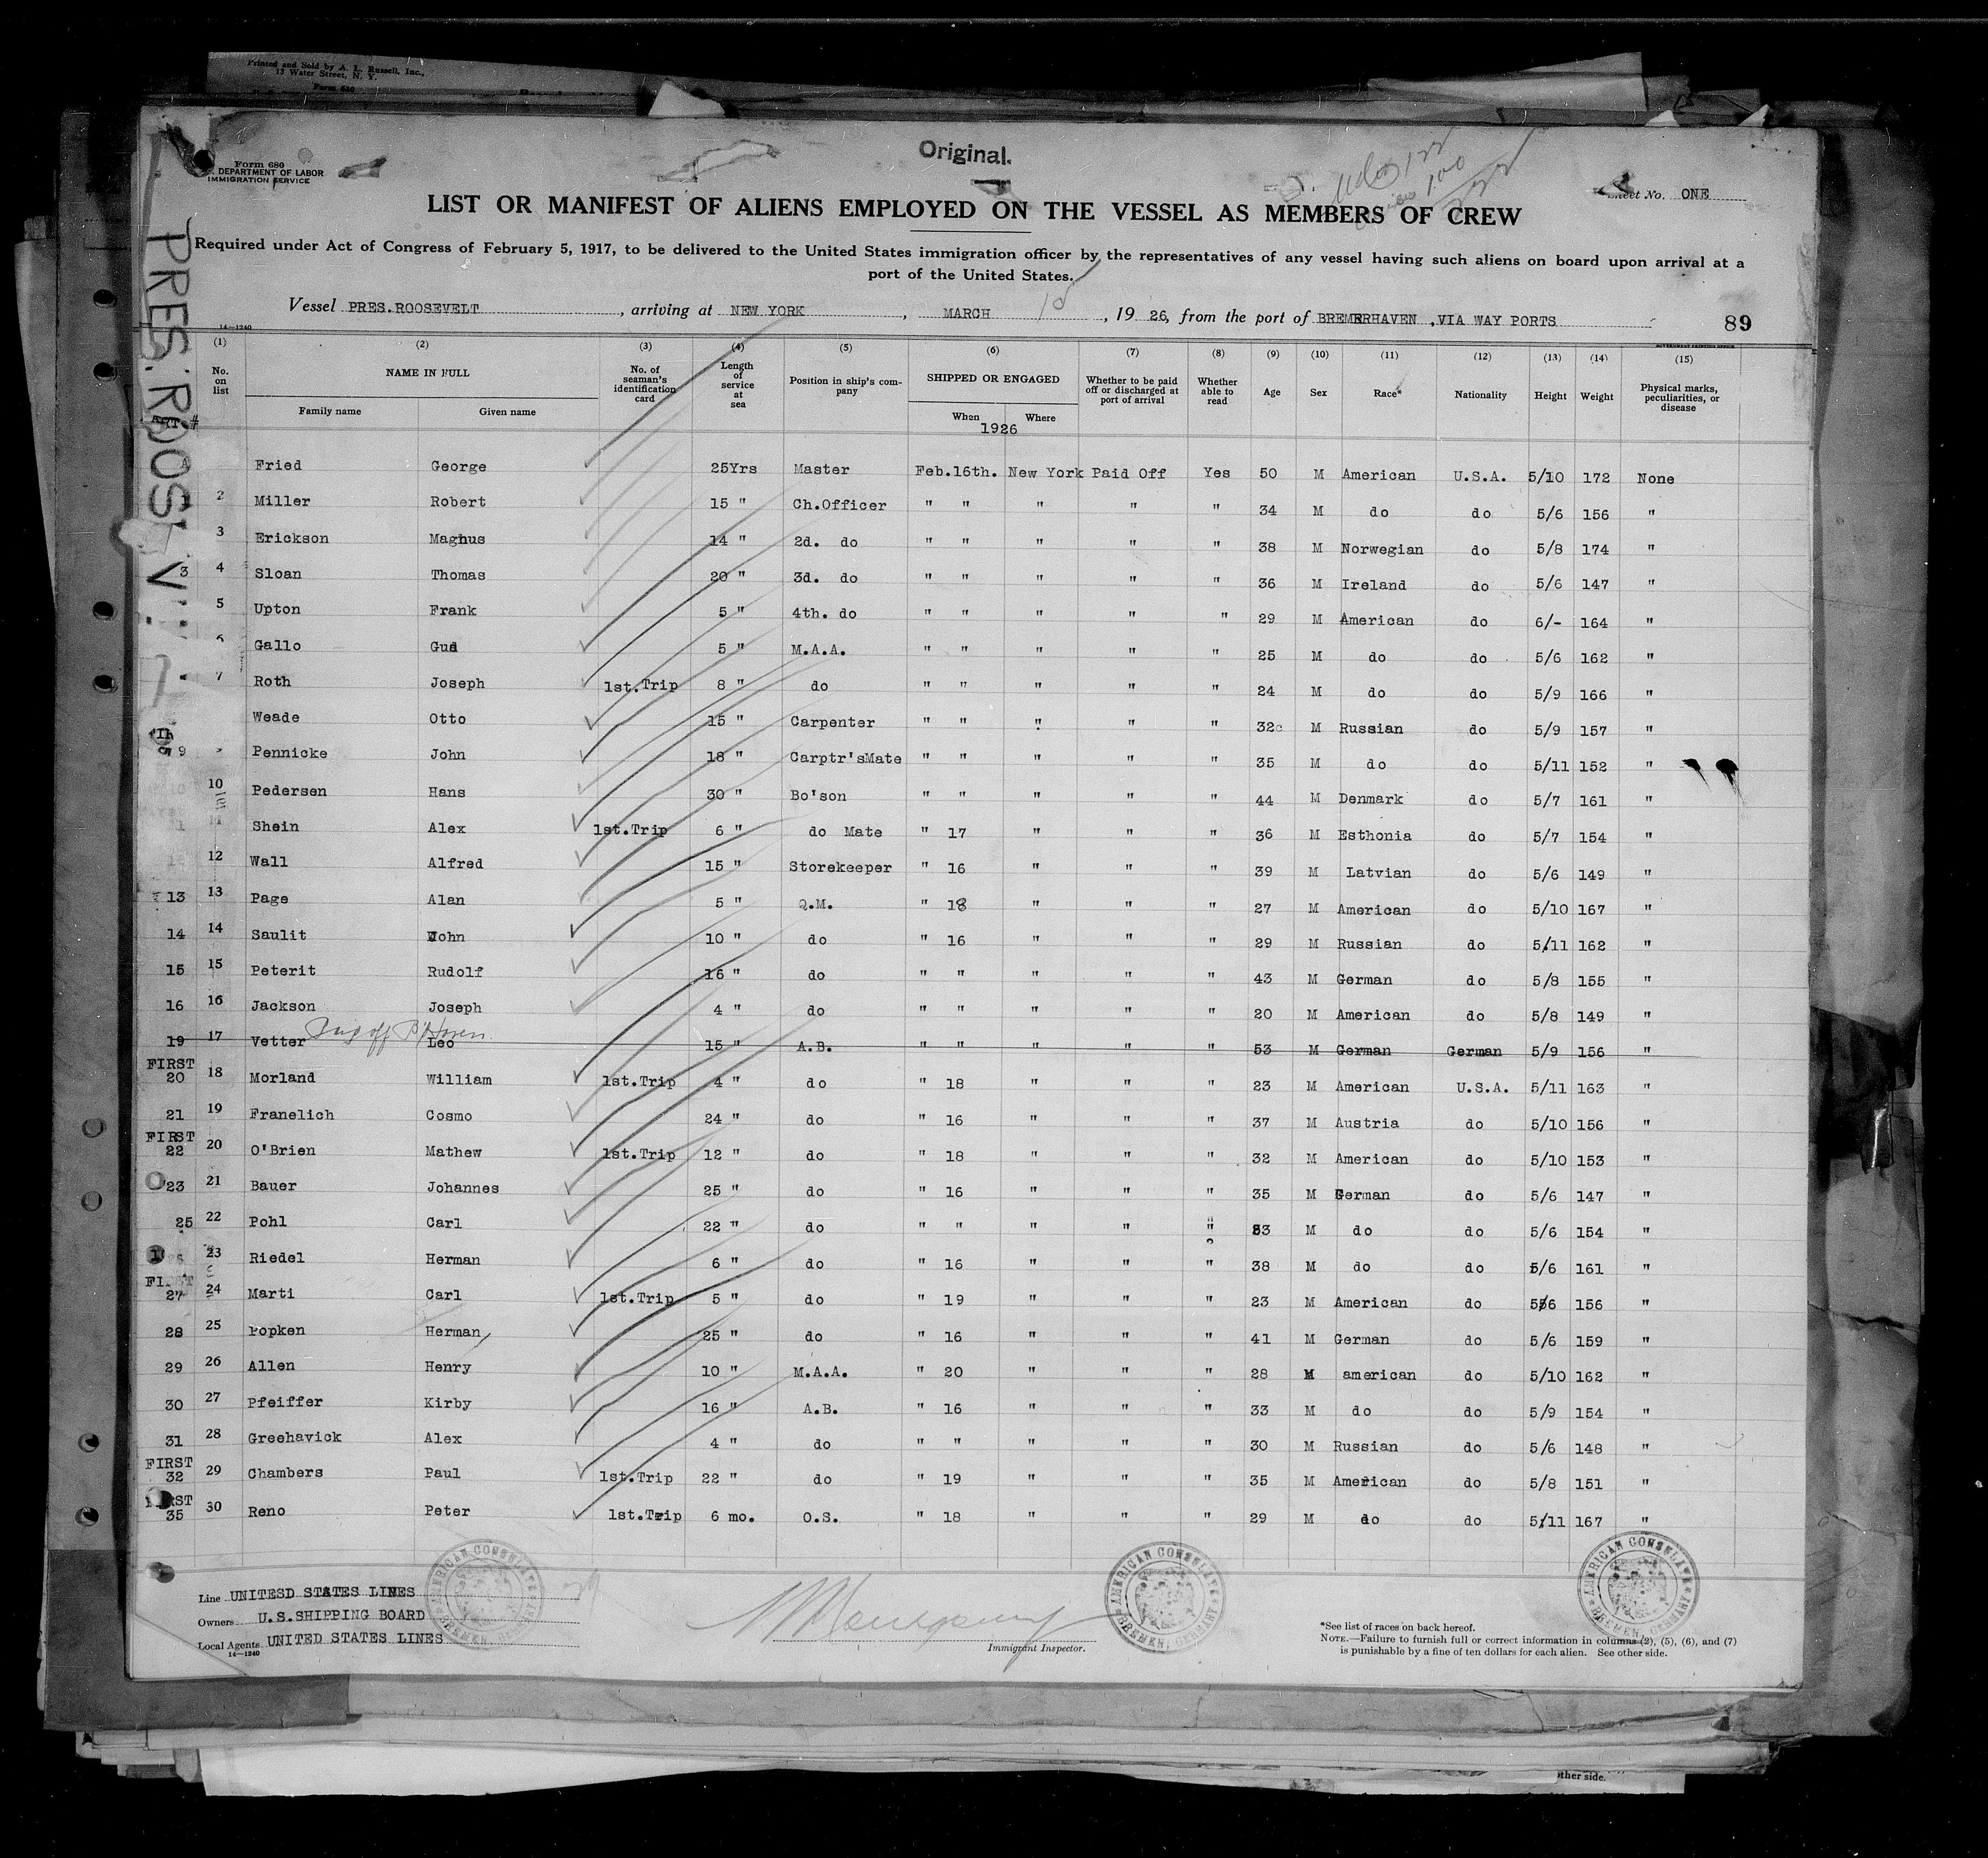 Printed and Sold by A. L. Russell, Inc.,
13 Water Street, N. Y.
Form 630
Original.
Form 680
DEPARTMENT OF LABOR
IMMIGRATION SERVICE
Sheet No. ONE
LIST OR MANIFEST OF ALIENS EMPLOYED ON THE VESSEL AS MEMBERS OF CREW
Required under Act of Congress of February 5, 1917, to be delivered to the United States immigration officer by the representatives of any vessel having such aliens on board upon arrival at a
port of the United States.
Vessel PRES.ROOSEVELT, arriving at NEW YORK, MARCH 15, 1926, from the port of BREMERHAVEN ,VIA WAY PORTS
89
14—1240
PRES. ROOSV.
(1) (2) (3) (4) (5) (6) (7) (8) (9) (10) (11) (12) (13) (14) (15)
No. on list NAME IN FULL Family name Given name No. of seaman's identification card Length of service at sea Position in ship's company SHIPPED OR ENGAGED When Where Whether to be paid off or discharged at port of arrival Whether able to read Age Sex Race* Nationality Height Weight Physical marks, peculiarities, or disease
1926
Fried George 25Yrs Master Feb.16th. New York Paid Off Yes 50 M American U.S.A. 5/10 172 None
2 Miller Robert 15 " Ch.Officer " " " " " 34 M do do 5/6 156 "
3 Erickson Maghus 14 " 2d. do " " " " " 38 M Norwegian do 5/8 174 "
3 4 Sloan Thomas 20 " 3d. do " " " " " 36 M Ireland do 5/6 147 "
5 Upton Frank 5 " 4th. do " " " " " 29 M American do 6/- 164 "
6 Gallo Gus 5 " M.A.A. " " " " " 25 M do do 5/6 162 "
7 Roth Joseph 1st.Trip 8 " do " " " " " 24 M do do 5/9 166 "
Weade Otto 15 " Carpenter " " " " " 32 M Russian do 5/9 157 "
9 Pennicke John 18 " Carptr'sMate " " " " " 35 M do do 5/11 152 "
10 Pedersen Hans 30 " Bo'son " " " " " 44 M Denmark do 5/7 161 "
11 Shein Alex 1st.Trip 6 " do Mate " 17 " " " 36 M Esthonia do 5/7 154 "
12 Wall Alfred 15 " Storekeeper " 16 " " " 39 M Latvian do 5/6 149 "
13 13 Page Alan 5 " Q.M. " 18 " " " 27 M American do 5/10 167 "
14 14 Saulit John 10 " do " 16 " " " 29 M Russian do 5/11 162 "
15 15 Peterit Rudolf 16 " do " " " " " 43 M German do 5/8 155 "
16 16 Jackson Joseph 4 " do " " " " " 20 M American do 5/8 149 "
19 17 Vetter Leo 15 " A.B. " " " " " 53 M German German 5/9 156 "
FIRST
20 18 Morland William 1st.Trip 4 " do " 18 " " " 23 M American U.S.A. 5/11 163 "
21 19 Franelich Cosmo 24 " do " 16 " " " 37 M Austria do 5/10 156 "
FIRST
22 20 O'Brien Mathew 1st.Trip 12 " do " 18 " " " 32 M American do 5/10 153 "
23 21 Bauer Johannes 25 " do " 16 " " " 35 M German do 5/6 147 "
25 22 Pohl Carl 22 " do " " " " " 53 M do do 5/6 154 "
23 Riedel Herman 6 " do " 16 " " " 38 M do do 5/6 161 "
FIRST
27 24 Marti Carl 1st.Trip 5 " do " 19 " " " 23 M American do 5/6 156 "
28 25 Popken Herman 25 " do " 16 " " " 41 M German do 5/6 159 "
29 26 Allen Henry 10 " M.A.A. " 20 " " " 28 M american do 5/10 162 "
30 27 Pfeiffer Kirby 16 " A.B. " 16 " " " 33 M do do 5/9 154 "
31 28 Greehavick Alex 4 " do " " " " " 30 M Russian do 5/6 148 "
FIRST
32 29 Chambers Paul 1st.Trip 22 " do " 19 " " " 35 M American do 5/8 151 "
FIRST
35 30 Reno Peter 1st.Trip 6 mo. O.S. " 18 " " " 29 M do do 5/11 167 "
Line UNITESD STATES LINES
Owners U.S.SHIPPING BOARD
Local Agents UNITED STATES LINES
14—1240
Immigrant Inspector.
AMERICAN CONSULATE BREMEN, GERMANY
AMERICAN CONSULATE BREMEN, GERMANY
AMERICAN CONSULATE BREMEN, GERMANY
*See list of races on back hereof.
NOTE.—Failure to furnish full or correct information in columns (2), (5), (6), and (7)
is punishable by a fine of ten dollars for each alien. See other side.
other side.